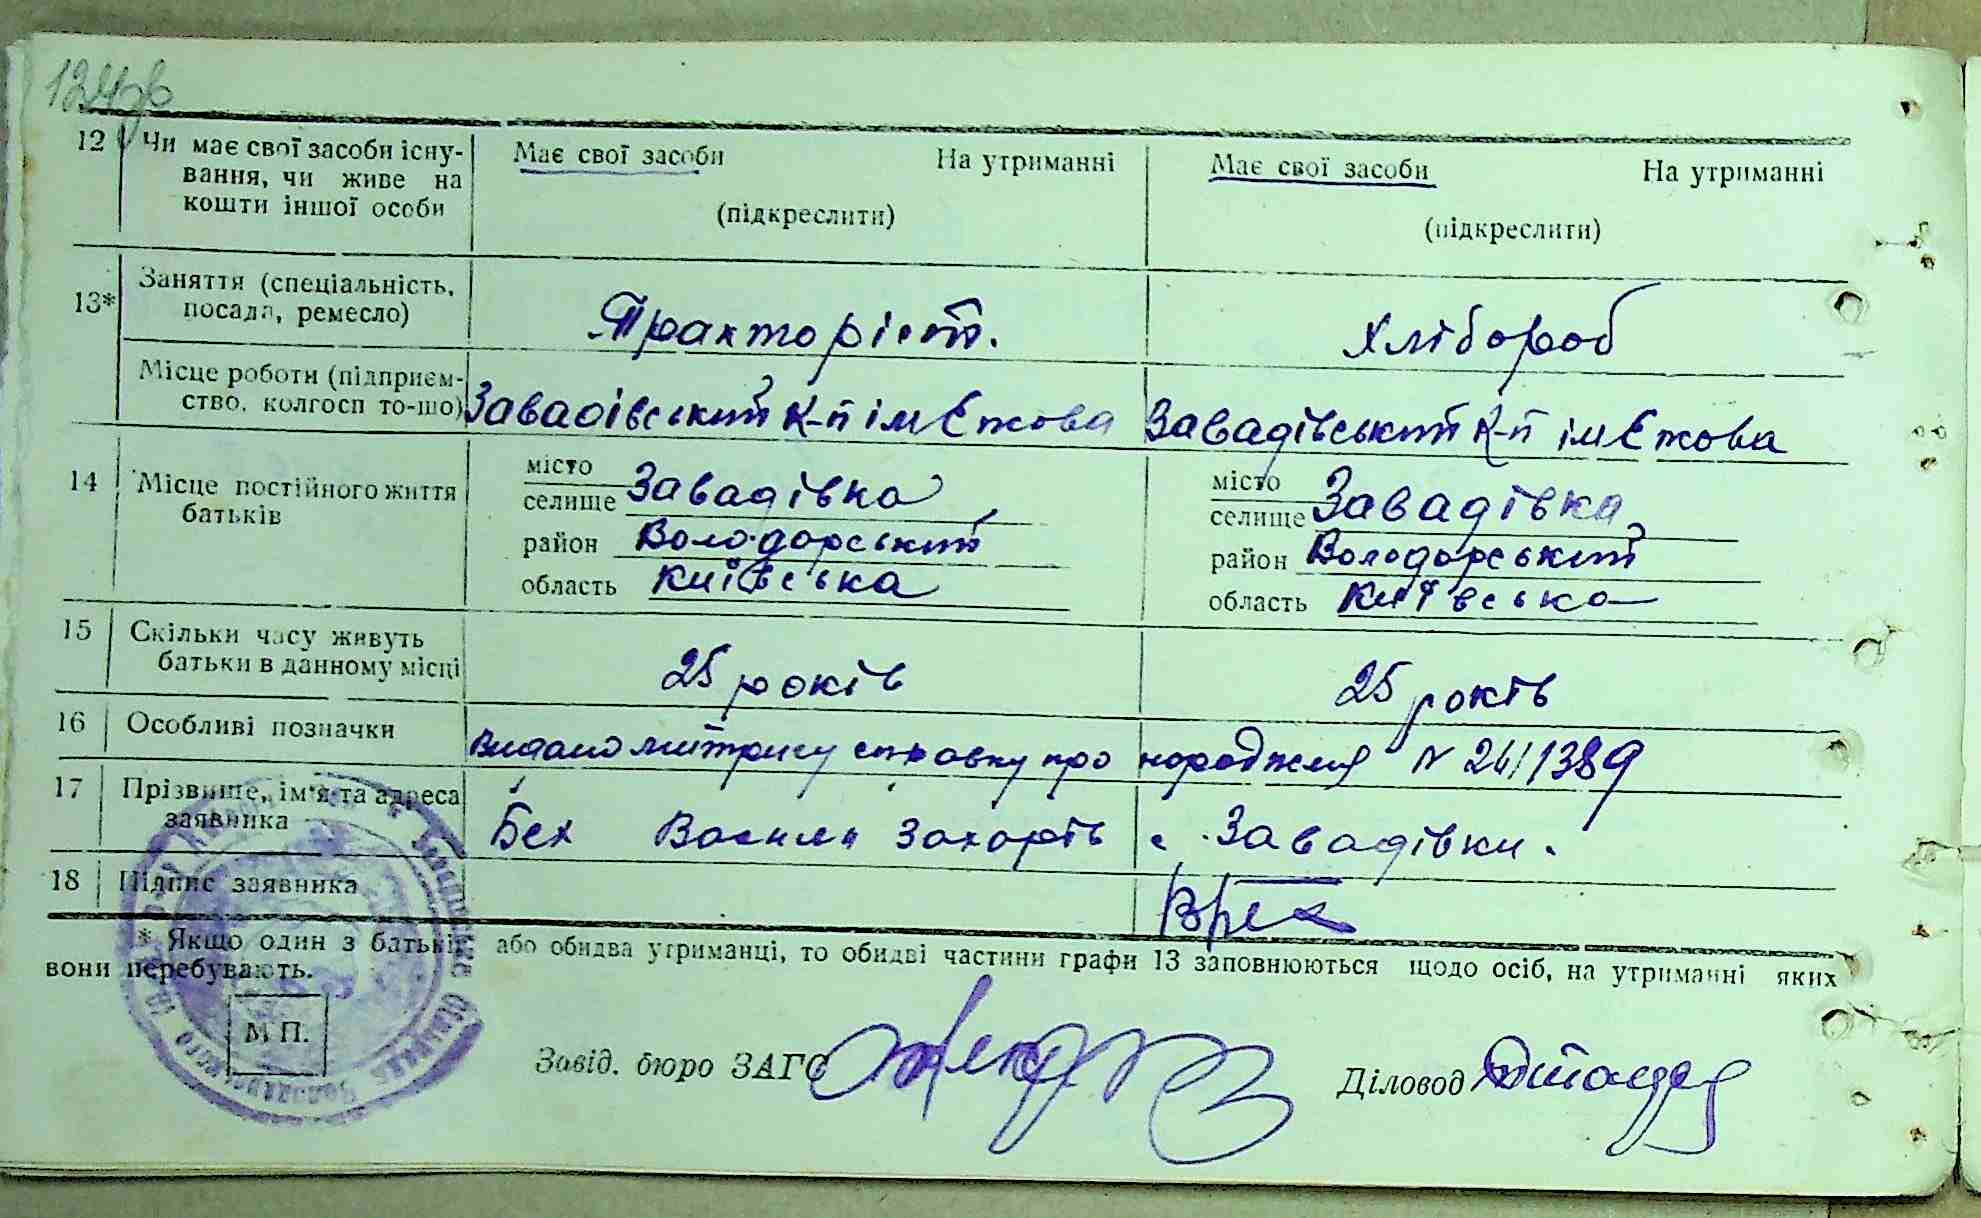 124зв
12 Чи має свої засоби існу- Має свої засоби На утриманні Має свої засоби На утриманні
вання, чи живе на
кошти іншої особи (підкреслити) (підкреслити)
13* Заняття (спеціальність,
посада, ремесло) Тракторіст. Хлібороб
Місце роботи (підприєм-
ство, колгосп то-шо) Завадівський к-п ім Єжова Завадівський к-п ім Єжова
14 Місце постійного життя
батьків
місто
селище Завадівка
район Володарський
область Київська
місто
селище Завадівка
район Володарський
область Київська
15 Скільки часу живуть
батьки в данному місці 25 років 25 років
16 Особливі позначки Видано справку про народження N 26/1389
17 Прізвище, ім'я та адреса
заявника Бех Василь с. Завадівки.
18 Підпис заявника
* Якщо один з батьків або обидва утриманці, то обидві частини графи 13 заповнюються щодо осіб, на утриманні яких
вони перебувають.
М П.
Завід. бюро ЗАГС Діловод